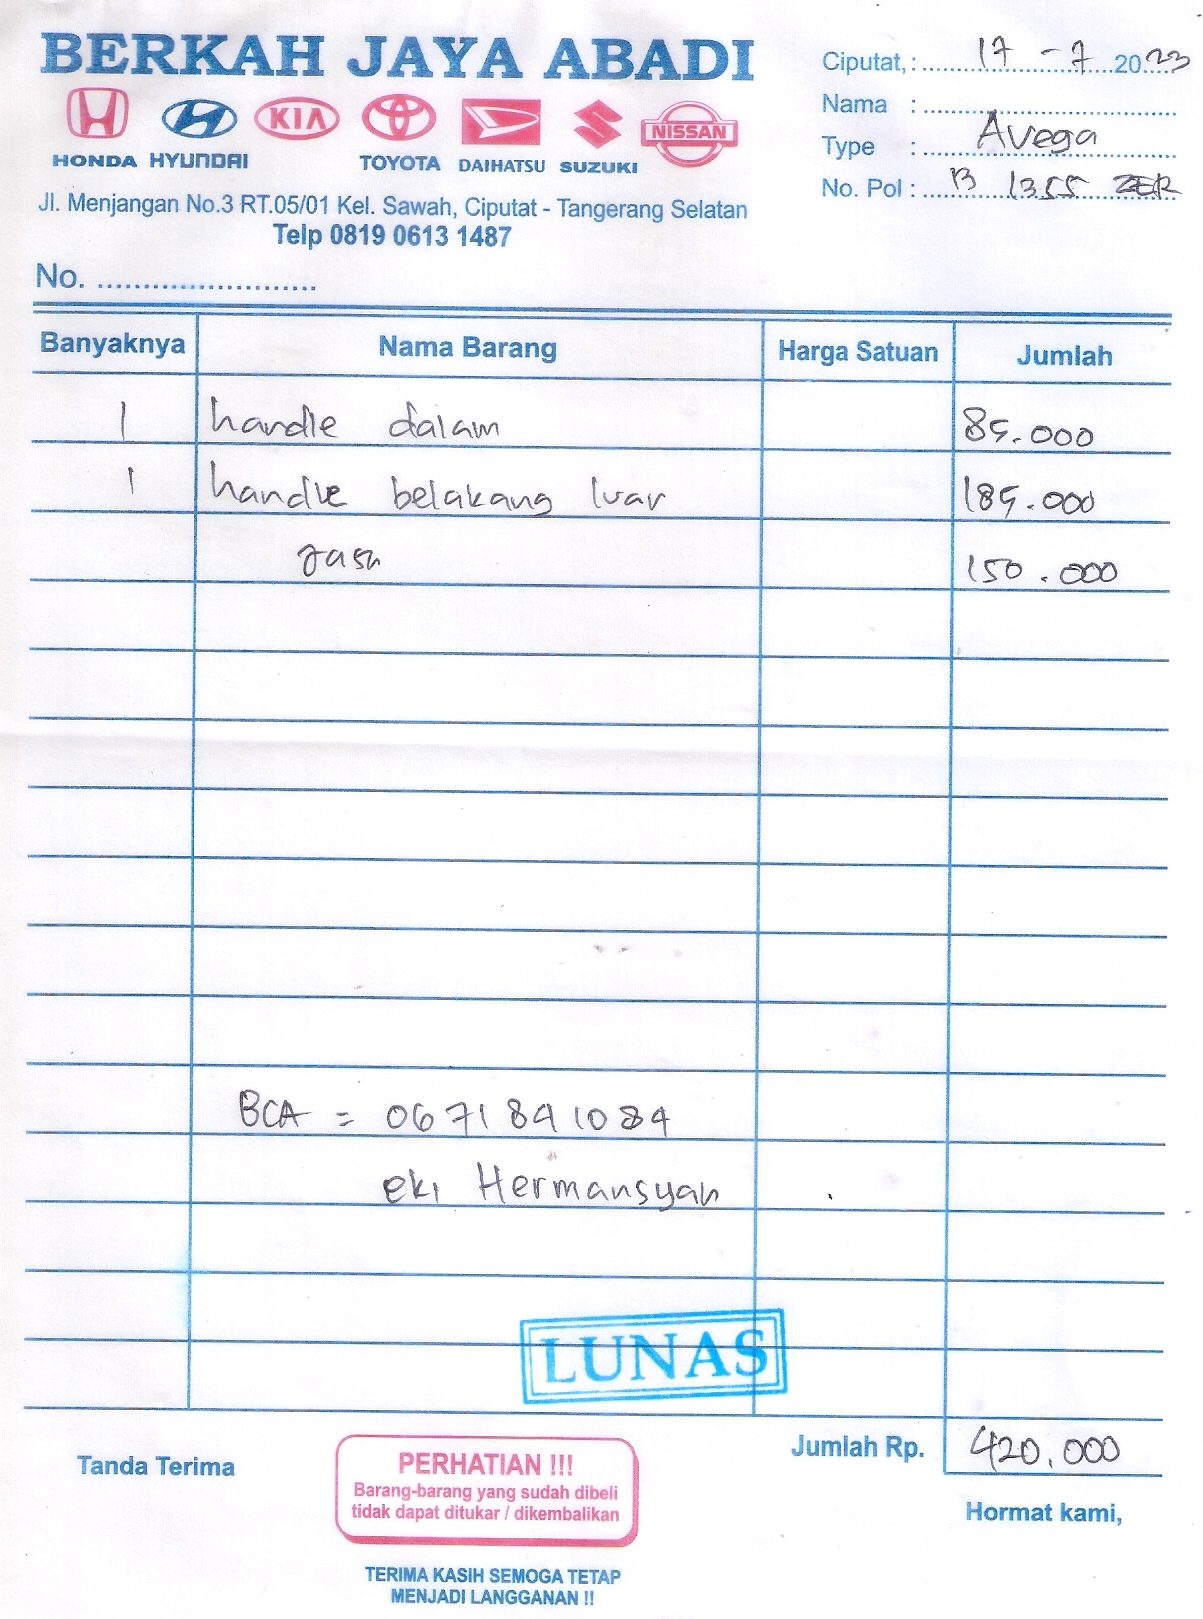 BERKAH JAYA ABADI
HONDA HYUNDAI KIA TOYOTA DAIHATSU SUZUKI NISSAN
Jl. Menjangan No.3 RT.05/01 Kel. Sawah, Ciputat - Tangerang Selatan
Telp 0819 0613 1487
Ciputat, : 17 - 7 2023
Nama :
Type : Avega
No. Pol : B 1355 ZER
No. ........................
Banyaknya Nama Barang Harga Satuan Jumlah
1 handle dalam 85.000
1 handle belakang luar 185.000
Jasa 150.000
BCA = 0671891084
eki Hermansyah
LUNAS
Jumlah Rp. 420.000
Tanda Terima
PERHATIAN !!!
Barang-barang yang sudah dibeli
tidak dapat ditukar / dikembalikan
Hormat kami,
TERIMA KASIH SEMOGA TETAP
MENJADI LANGGANAN !!